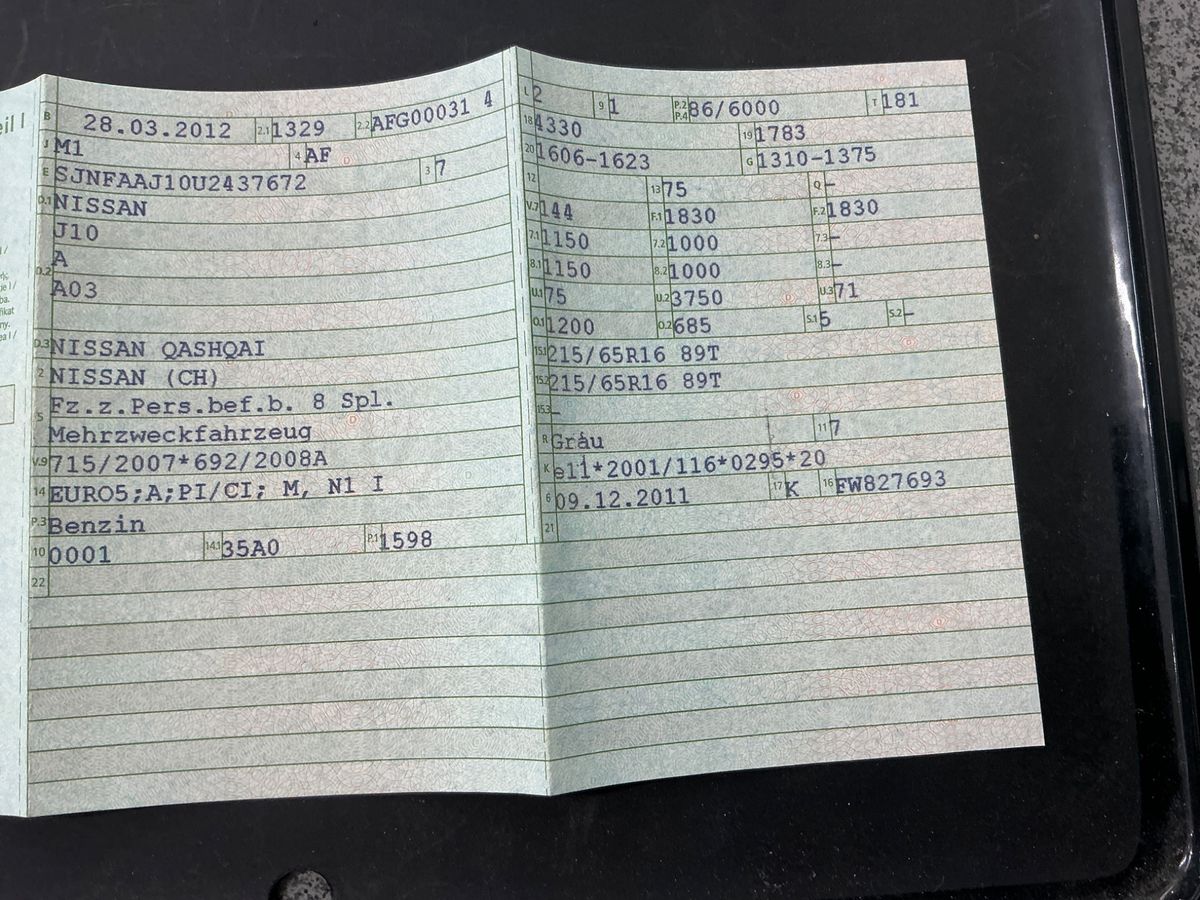 eil I
B 28.03.2012 2.1 1329 2.2 AFG00031 4
J M1 4 AF
E SJNFAAJ10U2437672 3 7
D.1 NISSAN
J10
D.2 A
A03
D.3 NISSAN QASHQAI
2 NISSAN (CH)
5 Fz.z.Pers.bef.b. 8 Spl.
Mehrzweckfahrzeug
V.9 715/2007*692/2008A
14 EURO5;A;PI/CI; M, N1 I
P.3 Benzin
10 0001 14.1 35A0 P.1 1598
22
L 2 9 1 P.2 P.4 86/6000 T 181
18 4330 19 1783
20 1606-1623 G 1310-1375
12 13 75 Q -
V.7 144 F.1 1830 F.2 1830
7.1 1150 7.2 1000 7.3 -
8.1 1150 8.2 1000 8.3 -
U.1 75 U.2 3750 U.3 71
O.1 1200 O.2 685 S.1 5 S.2 -
15.1 215/65R16 89T
15.2 215/65R16 89T
15.3 -
R Grau 11 7
K e11*2001/116*0295*20
6 09.12.2011 17 K 16 FW827693
21